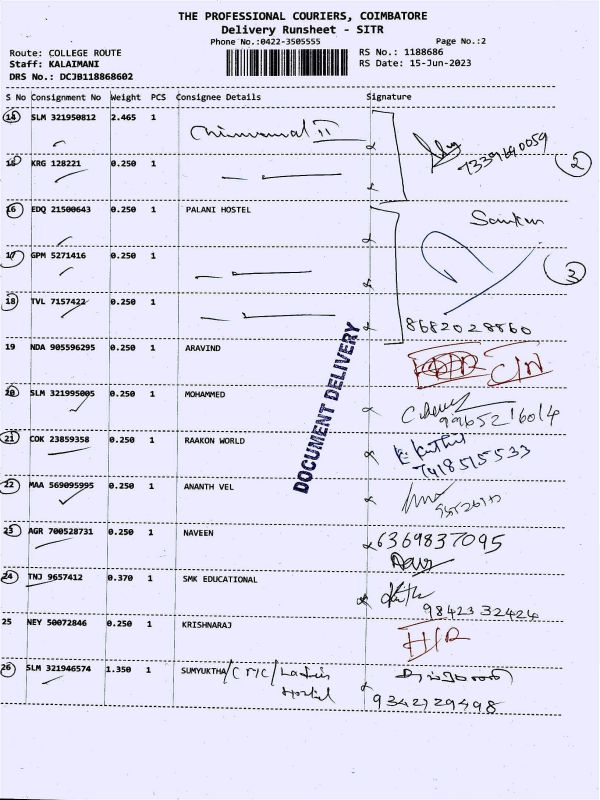 THE PROFESSIONAL COURIERS, COIMBATORE
Delivery Runsheet - SITR
Phone No.:0422-3505555 Page No.:2
Route: COLLEGE ROUTE RS No.: 1188686
Staff: KALAIMANI RS Date: 15-Jun-2023
DRS No.: DCJB118868602
S No Consignment No Weight PCS Consignee Details Signature
14 SLM 321950812 2.465 1
15 KRG 128221 0.250 1 2
16 EDQ 21500643 0.250 1 PALANI HOSTEL
17 GPM 5271416 0.250 1 3
18 TVL 7157422 0.250 1 8682028860
19 NDA 905596295 0.250 1 ARAVIND
20 SLM 321995005 0.250 1 MOHAMMED
21 COK 23859358 0.250 1 RAAKON WORLD
7418515533
22 MAA 569095995 0.250 1 ANANTH VEL
23 AGR 700528731 0.250 1 NAVEEN
6369837095
24 TNJ 9657412 0.370 1 SMK EDUCATIONAL
9842332424
25 NEY 50072846 0.250 1 KRISHNARAJ
26 SLM 321946574 1.350 1 SUMYUKTHA/ Ladies
Hostel 9342729498
DOCUMENT DELIVERY